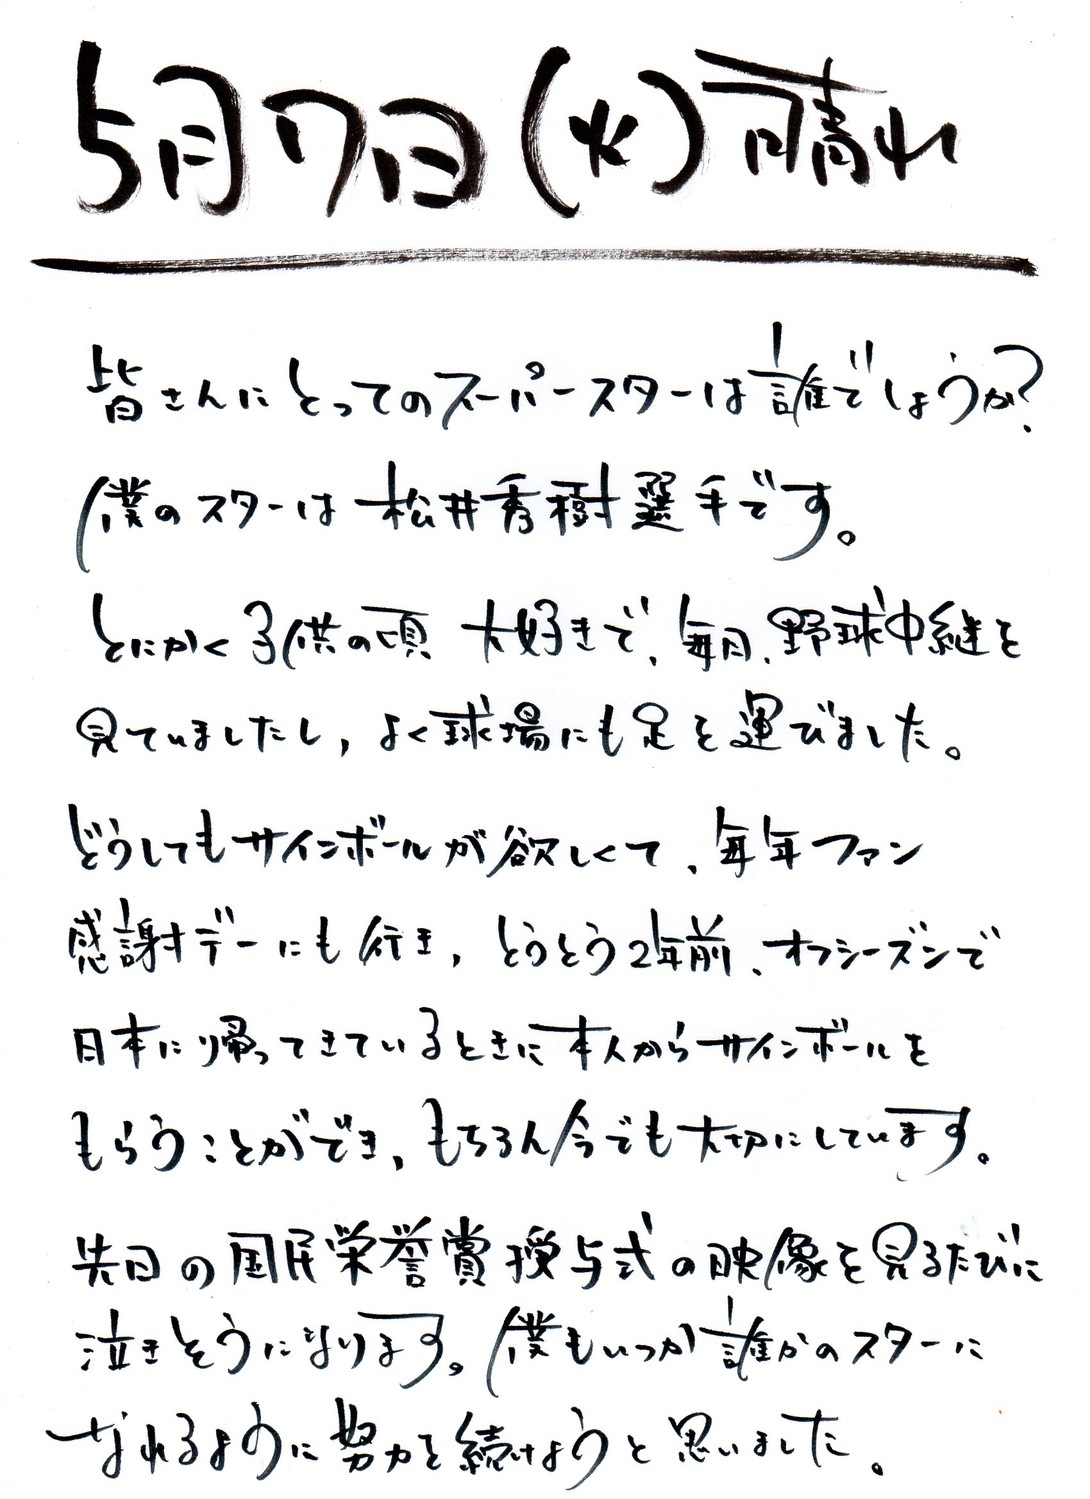 5月7日(火)晴れ
皆さんにとってのスーパースターは誰でしょうか?
僕のスターは松井秀樹選手です。
とにかく子供の頃 大好きで、毎日、野球中継を
見ていましたし、よく球場にも足を運びました。
どうしてもサインボールが欲しくて、毎年ファン
感謝デーにも行き、とうとう2年前、オフシーズンで
日本に帰ってきているときに本人からサインボールを
もらうことができ、もちろん今でも大切にしています。
先日の国民栄誉賞授与式の映像を見るたびに
泣きそうになります。僕もいつか誰かのスターに
なれるように努力を続けようと思いました。